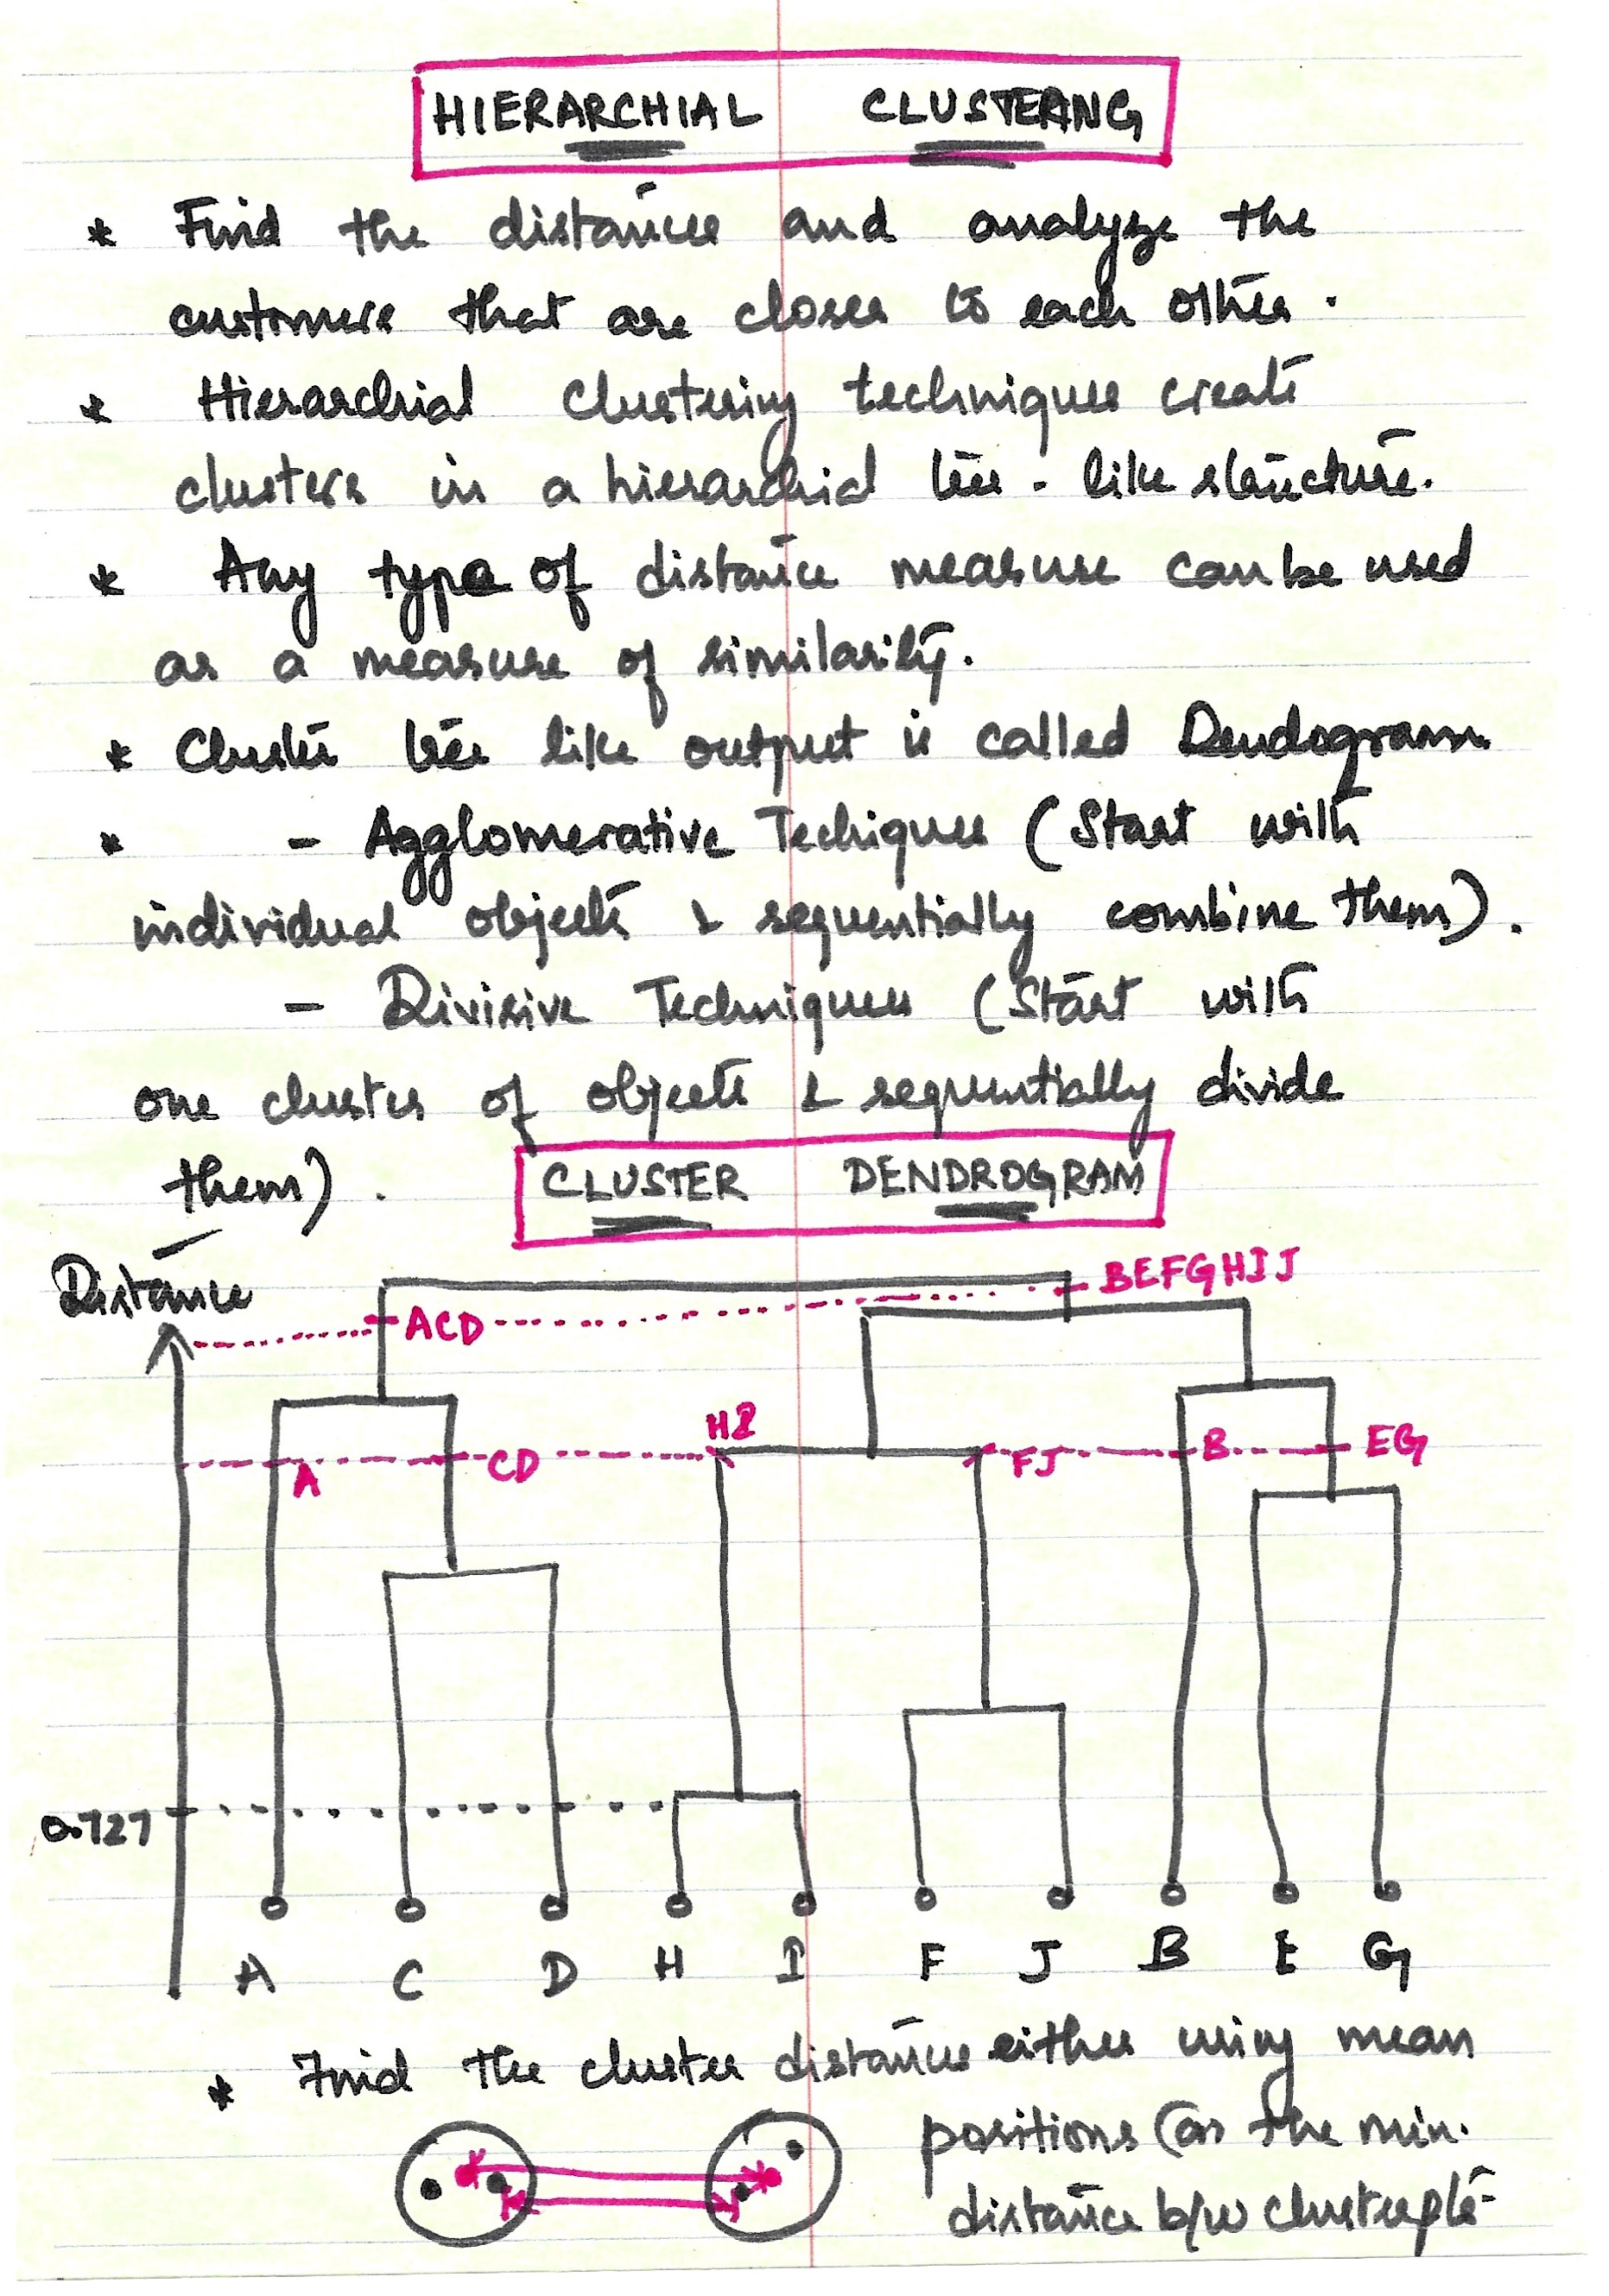 HIERARCHIAL CLUSTERING
* Find the distances and analyze the
customers that are closer to each other.
* Hierarchial clustering techniques create
clusters in a hierarchial tree - like structure.
* Any type of distance measure can be used
as a measure of similarity.
* Cluster tree like output is called Dendogram
* - Agglomerative Techiques (Start with
individual objects & sequentially combine them).
- Divisive Techniques (Start with
one cluster of objects & sequentially divide
them).
CLUSTER DENDROGRAM
Distance
BEFGHIJ
ACD
HI
A CD FJ B EG
0.727
A C D H I F J B E G
* Find the cluster distance either using mean
positions (or the min.
distance b/w cluster pts